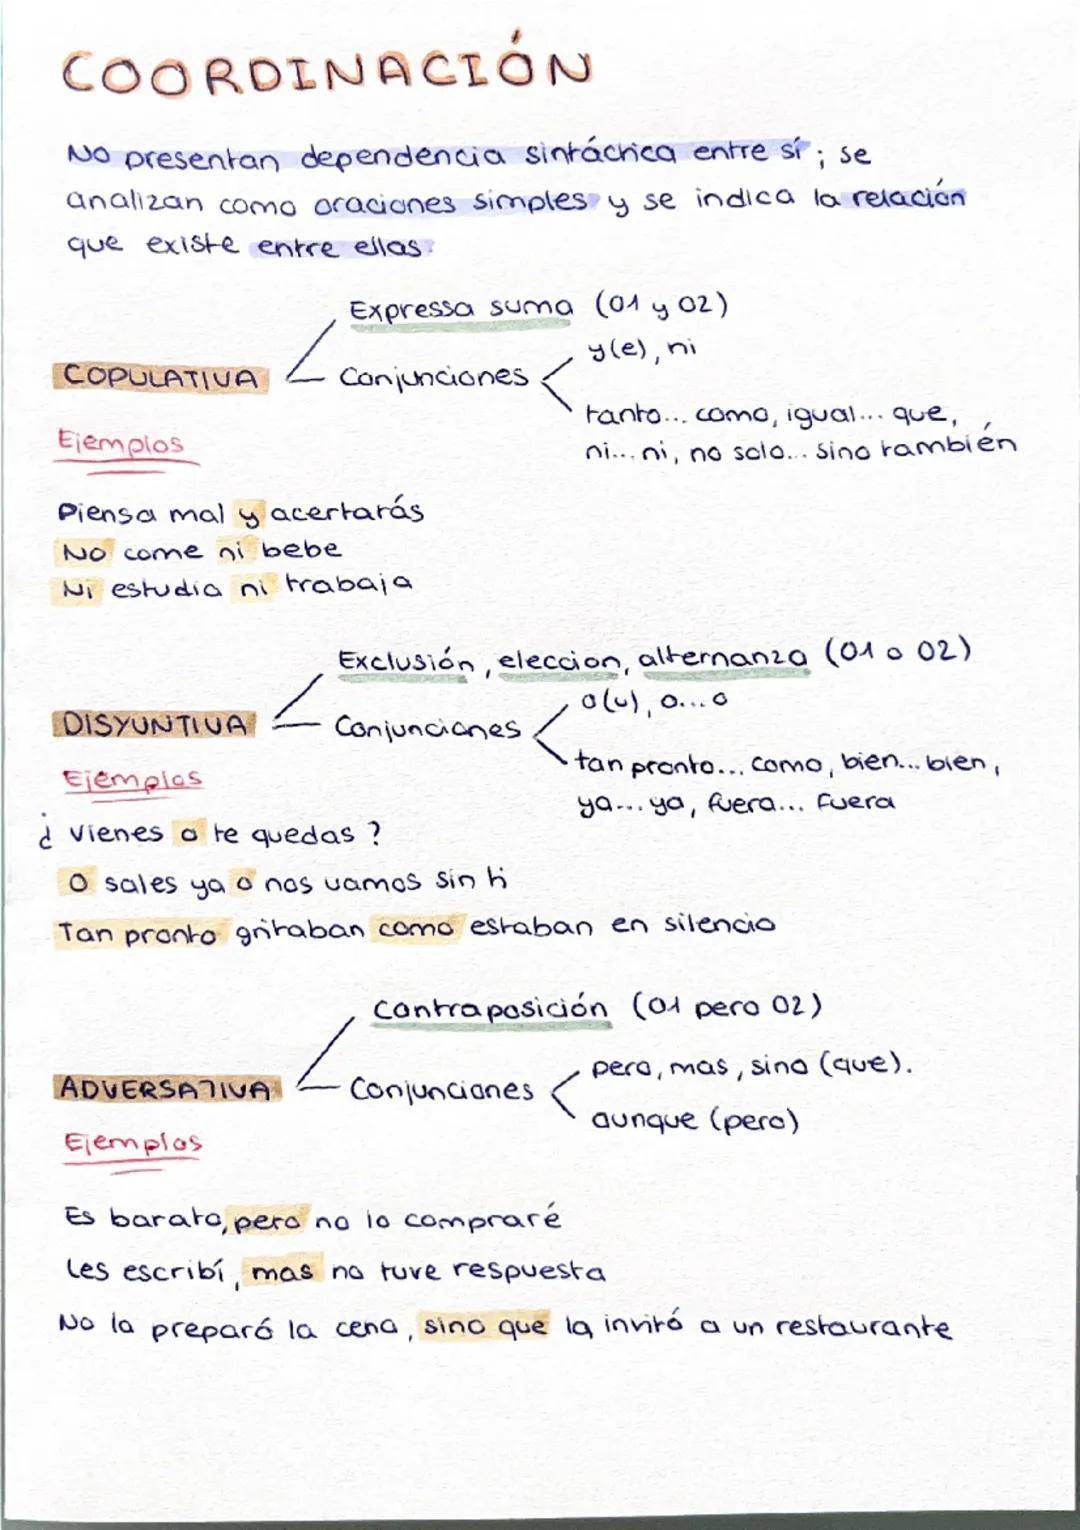 COORDINACIÓN
No presentan dependencia sintáctica entre sí; se
analizan como oraciones simples y se indica la relación
que existe entre ellas.
Expressa suma (O1 y O2)
y(e), ni
COPULATIVA
Conjunciones
tanto... como, igual... que,
ni... ni, no solo... sino también
Ejemplos
Piensa mal y acertarás
No come ni bebe
Ni estudia ni trabaja
Exclusión, eleccion, alternanza (O1 o O2)
o(u), o...o
DISYUNTIVA
Conjunciones
tan pronto... como, bien... bien,
ya... ya, fuera... fuera
Ejemplos
¿Vienes o te quedas?
O sales ya o nos vamos sin ti
Tan pronto gritaban como estaban en silencio
Contraposición (O1 pero O2)
pero, mas, sino (que).
ADVERSATIVA
Conjunciones
aunque (pero)
Ejemplos
Es barato, pero no lo compraré
Les escribí, mas no tuve respuesta
No la preparó la cena, sino que la invitó a un restaurante